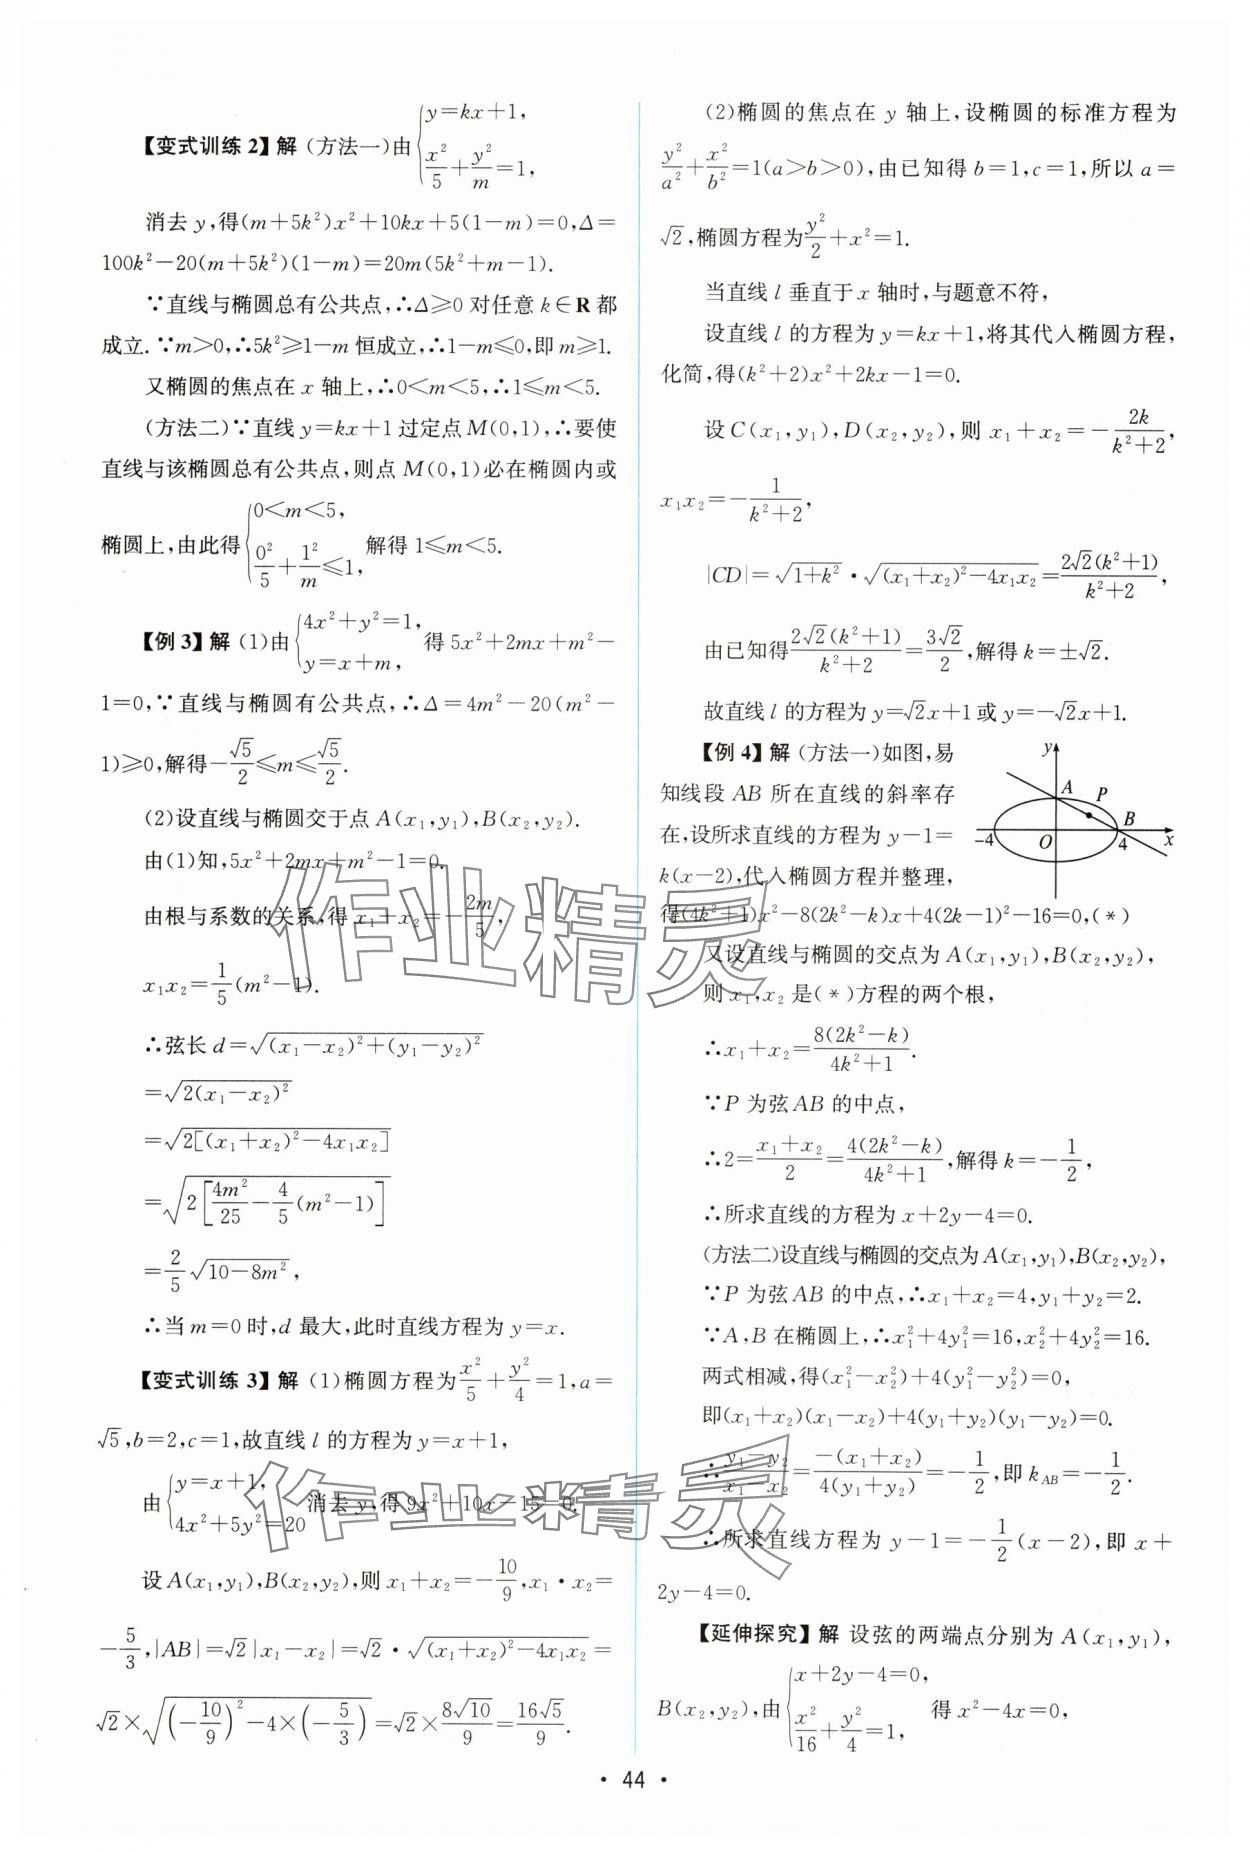 【变式训练2】解 (方法一)由{y=kx+1, x²/5+y²/m=1,
消去 y,得(m+5k²)x²+10kx+5(1-m)=0,Δ=
100k²-20(m+5k²)(1-m)=20m(5k²+m-1).
∵直线与椭圆总有公共点,∴Δ≥0 对任意 k∈R 都
成立.∵m>0,∴5k²≥1-m 恒成立,∴1-m≤0,即 m≥1.
又椭圆的焦点在 x 轴上,∴0<m<5,∴1≤m<5.
(方法二)∵直线 y=kx+1 过定点 M(0,1),∴要使
直线与该椭圆总有公共点,则点 M(0,1)必在椭圆内或
椭圆上,由此得{0<m<5, 0²/5+1²/m≤1, 解得 1≤m<5.
【例 3】解 (1)由{4x²+y²=1, y=x+m, 得 5x²+2mx+m²-
1=0,∵直线与椭圆有公共点,∴Δ=4m²-20(m²-
1)≥0,解得-√5/2≤m≤√5/2.
(2)设直线与椭圆交于点 A(x₁,y₁),B(x₂,y₂).
由(1)知,5x²+2mx+m²-1=0.
由根与系数的关系,得 x₁+x₂=-2m/5,
x₁x₂=1/5(m²-1).
∴弦长 d=√((x₁-x₂)²+(y₁-y₂)²)
=√(2(x₁-x₂)²)
=√(2[(x₁+x₂)²-4x₁x₂])
=√(2[4m²/25-4/5(m²-1)])
=2/5√(10-8m²),
∴当 m=0 时,d 最大,此时直线方程为 y=x.
【变式训练 3】解 (1)椭圆方程为x²/5+y²/4=1,a=
√5,b=2,c=1,故直线 l 的方程为 y=x+1,
由{y=x+1, 4x²+5y²=20 消去 y,得 9x²+10x-15=0.
设 A(x₁,y₁),B(x₂,y₂),则 x₁+x₂=-10/9,x₁·x₂=
-5/3,|AB|=√2|x₁-x₂|=√2·√((x₁+x₂)²-4x₁x₂)=
√2×√((-10/9)²-4×(-5/3))=√2×8√10/9=16√5/9.
(2)椭圆的焦点在 y 轴上,设椭圆的标准方程为
y²/a²+x²/b²=1(a>b>0),由已知得 b=1,c=1,所以 a=
√2,椭圆方程为y²/2+x²=1.
当直线 l 垂直于 x 轴时,与题意不符,
设直线 l 的方程为 y=kx+1,将其代入椭圆方程,
化简,得(k²+2)x²+2kx-1=0.
设 C(x₁,y₁),D(x₂,y₂),则 x₁+x₂=-2k/(k²+2),
x₁x₂=-1/(k²+2),
|CD|=√(1+k²)·√((x₁+x₂)²-4x₁x₂)=2√2(k²+1)/(k²+2),
由已知得2√2(k²+1)/(k²+2)=3√2/2,解得 k=±√2.
故直线 l 的方程为 y=√2x+1 或 y=-√2x+1.
【例 4】解 (方法一)如图,易
知线段 AB 所在直线的斜率存
在,设所求直线的方程为 y-1=
k(x-2),代入椭圆方程并整理,
y
A
P
B
-4
O
4
x
得(4k²+1)x²-8(2k²-k)x+4(2k-1)²-16=0,(*)
又设直线与椭圆的交点为 A(x₁,y₁),B(x₂,y₂),
则 x₁,x₂ 是(*)方程的两个根,
∴x₁+x₂=8(2k²-k)/(4k²+1).
∵P 为弦 AB 的中点,
∴2=(x₁+x₂)/2=4(2k²-k)/(4k²+1),解得 k=-1/2,
∴所求直线的方程为 x+2y-4=0.
(方法二)设直线与椭圆的交点为A(x₁,y₁),B(x₂,y₂),
∵P 为弦 AB 的中点,∴x₁+x₂=4,y₁+y₂=2.
∵A,B 在椭圆上,∴x₁²+4y₁²=16,x₂²+4y₂²=16.
两式相减,得(x₁²-x₂²)+4(y₁²-y₂²)=0,
即(x₁+x₂)(x₁-x₂)+4(y₁+y₂)(y₁-y₂)=0.
∴(y₁-y₂)/(x₁-x₂)=-(x₁+x₂)/(4(y₁+y₂))=-1/2,即 k_AB=-1/2.
∴所求直线方程为 y-1=-1/2(x-2),即 x+
2y-4=0.
【延伸探究】解 设弦的两端点分别为 A(x₁,y₁),
B(x₂,y₂),由{x+2y-4=0, x²/16+y²/4=1, 得 x²-4x=0,
作业精灵
作业精灵
· 44 ·